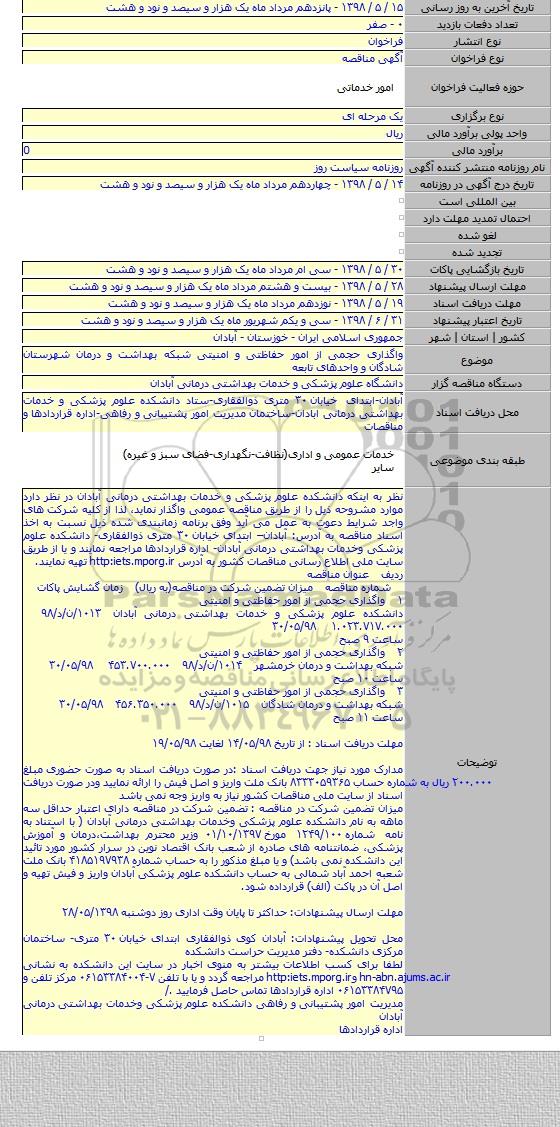 تاریخ آخرین به روز رسانی ۱۵ / ۵ / ۱۳۹۸ - پانزدهم مرداد ماه یک هزار و سیصد و نود و هشت
تعداد دفعات بازدید ۰ - صفر
نوع انتشار فراخوان
نوع فراخوان آگهی مناقصه
حوزه فعالیت فراخوان امور خدماتی
نوع برگزاری یک مرحله ای
واحد پولی برآورد مالی ریال
برآورد مالی 0
نام روزنامه منتشر کننده آگهی روزنامه سیاست روز
تاریخ درج آگهی در روزنامه ۱۴ / ۵ / ۱۳۹۸ - چهاردهم مرداد ماه یک هزار و سیصد و نود و هشت
بین المللی است
احتمال تمدید مهلت دارد
لغو شده
تجدید شده
تاریخ بازگشایی پاکات ۳۰ / ۵ / ۱۳۹۸ - سی ام مرداد ماه یک هزار و سیصد و نود و هشت
مهلت ارسال پیشنهاد ۲۸ / ۵ / ۱۳۹۸ - بیست و هشتم مرداد ماه یک هزار و سیصد و نود و هشت
مهلت دریافت اسناد ۱۹ / ۵ / ۱۳۹۸ - نوزدهم مرداد ماه یک هزار و سیصد و نود و هشت
تاریخ اعتبار پیشنهاد ۳۱ / ۶ / ۱۳۹۸ - سی و یکم شهریور ماه یک هزار و سیصد و نود و هشت
کشور | استان | شهر جمهوری اسلامی ایران - خوزستان - آبادان
موضوع واگذاری حجمی از امور حفاظتی و امنیتی شبکه بهداشت و درمان شهرستان
شادگان و واحدهای تابعه
دستگاه مناقصه گزار دانشگاه علوم پزشکی و خدمات بهداشتی درمانی آبادان
محل دریافت اسناد آبادان-ابتدای خیابان ۳۰ متری ذوالفقاری-ستاد دانشکده علوم پزشکی و خدمات
بهداشتی درمانی آبادان-ساختمان مدیریت امور پشتیبانی و رفاهی-اداره قراردادها و
مناقصات
طبقه بندی موضوعی خدمات عمومی و اداری(نظافت-نگهداری-فضای سبز و غیره)
سایر
توضیحات
نظر به اینکه دانشکده علوم پزشکی و خدمات بهداشتی درمانی آبادان در نظر دارد
موارد مشروحه ذیل را از طریق مناقصه عمومی واگذار نماید، لذا از کلیه شرکت های
واجد شرایط دعوت به عمل می آید وفق برنامه زمانبندی شده ذیل نسبت به اخذ
اسناد مناقصه به آدرس: آبادان– ابتدای خیابان ۳۰ متری ذوالفقاری- دانشکده علوم
پزشکی وخدمات بهداشتی درمانی آبادان- اداره قراردادها مراجعه نمایند و یا از طریق
سایت ملی اطلاع رسانی مناقصات کشور به آدرس http:iets.mporg.ir تهیه نمایند.
ردیف عنوان مناقصه
شماره مناقصه میزان تضمین شرکت در مناقصه(به ریال) زمان گشایش پاکات
۱ واگذاری حجمی از امور حفاظتی و امنیتی
دانشکده علوم پزشکی و خدمات بهداشتی درمانی آبادان ۱۰۱۳/ن/د/۹۸
۱.۰۲۳.۷۱۷.۰۰۰ ۳۰/۰۵/۹۸
ساعت ۹ صبح
۲ واگذاری حجمی از امور حفاظتی و امنیتی
شبکه بهداشت و درمان خرمشهر ۱۰۱۴/ن/د/۹۸ ۴۵۳.۷۰۰.۰۰۰ ۳۰/۰۵/۹۸
ساعت ۱۰ صبح
۳ واگذاری حجمی از امور حفاظتی و امنیتی
شبکه بهداشت و درمان شادگان ۱۰۱۵/ن/د/۹۸ ۴۵۶.۲۵۰.۰۰۰ ۳۰/۰۵/۹۸
ساعت ۱۱ صبح
مهلت دریافت اسناد : از تاریخ ۱۴/۰۵/۹۸ لغایت ۱۹/۰۵/۹۸
مدارک مورد نیاز جهت دریافت اسناد :در صورت دریافت اسناد به صورت حضوری مبلغ
۲۰۰.۰۰۰ ریال به شماره حساب ۸۳۳۳۰۵۹۳۶۵ بانک ملت واریز و اصل فیش را ارائه نمایید ودر صورت دریافت
اسناد از سایت ملی مناقصات کشور نیاز به واریز وجه نمی باشد.
میزان تضمین شرکت در مناقصه : تضمین شرکت در مناقصه دارای اعتبار حداقل سه
ماهه به نام دانشکده علوم پزشکی وخدمات بهداشتی درمانی آبادان ( با استناد به
نامه شماره ۱۲۴۹/۱۰۰ مورخ ۰۱/۱۰/۱۳۹۷ وزیر محترم بهداشت،درمان و آموزش
پزشکی، ضمانتنامه های صادره از شعب بانک اقتصاد نوین در سرار کشور مورد تائید
این دانشکده نمی باشد) و یا مبلغ مذکور را به حساب شماره ۴۱۸۵۱۹۷۹۳۸ بانک ملت
شعبه احمد آباد شمالی به حساب دانشکده علوم پزشکی آبادان واریز و فیش تهیه و
اصل آن در پاکت (الف) قرارداده شود.
مهلت ارسال پیشنهادات: حداکثر تا پایان وقت اداری روز دوشنبه ۲۸/۰۵/۱۳۹۸
محل تحویل پیشنهادات: آبادان کوی ذوالفقاری ابتدای خیابان ۳۰ متری- ساختمان
مرکزی دانشکده- دفتر مدیریت حراست دانشکده
لطفا برای کسب اطلاعات بیشتر به منوی اخبار در سایت این دانشکده به نشانی
hn-abn.ajums.ac.ir و http:iets.mporg.ir مراجعه گردد و یا با تلفن ۷-۰۶۱۵۳۳۸۴۰۰۴ مرکز تلفن و
۰۶۱۵۳۳۸۴۷۹۵ اداره قراردادها تماس حاصل فرمایید ./
مدیریت امور پشتیبانی و رفاهی دانشکده علوم پزشکی وخدمات بهداشتی درمانی
آبادان
اداره قراردادها
۰۲۱-۸۸۳۴۹۶۷۰-۵